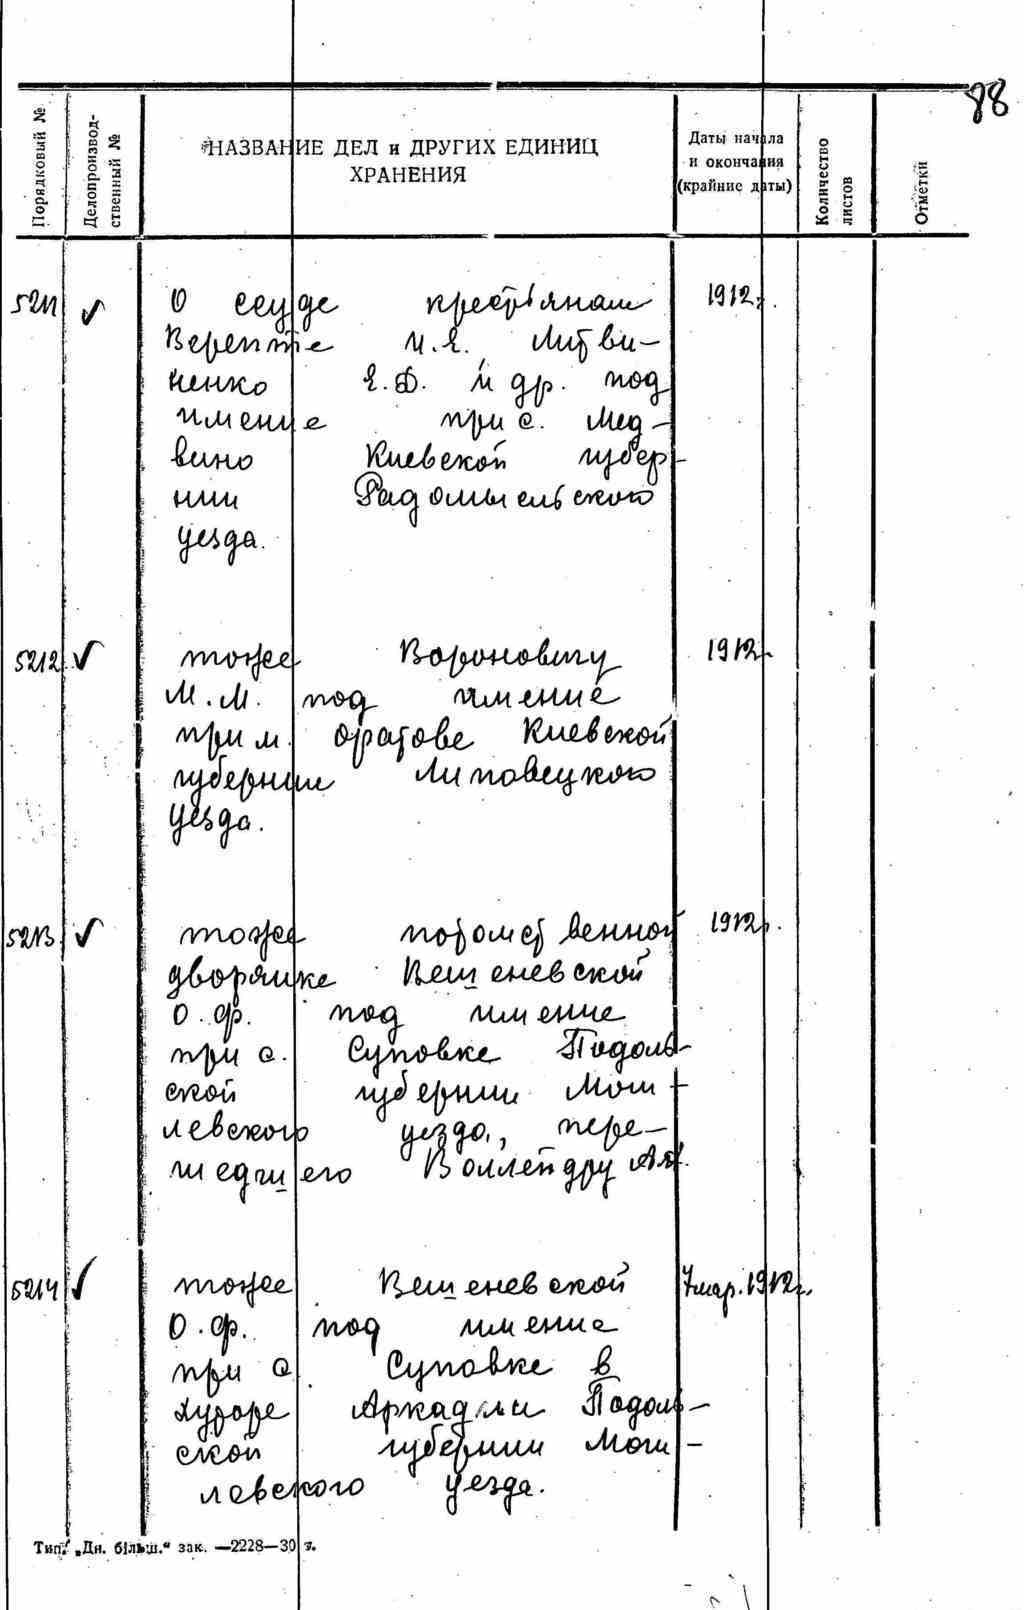 88
Порядковый №
Делопроизвод-
ственный №
НАЗВАНИЕ ДЕЛ и ДРУГИХ ЕДИНИЦ
ХРАНЕНИЯ
Даты начала
и окончания
(крайние даты)
Количество
листов
Отметки
5211 ✓ О ссуде крестьянам 1912г.
Верепте И.Я., Литви-
ненко Я.Ф. и др. под
имение при с. Мед-
вино Киевской губер-
нии Радомысльского
уезда.
5212 ✓ тоже Вороновичу 1912г.
М.М. под имение
при м. Оратове Киевской
губернии Липовецкого
уезда.
5213 ✓ тоже потомственной 1912г.
дворянке Вешеневской
О.Ф. под имение
при с. Суповке Подоль-
ской губернии Моги-
левского уезда, пере-
шедшего Воллендру
5214 ✓ тоже Вешеневской 7 мар. 1912г.
О.Ф. под имение
при с. Суповке в
хуторе Аркадии Подоль-
ской губернии Моги-
левского уезда.
Тип. „Дн. більш." зак. —2228—30 т.